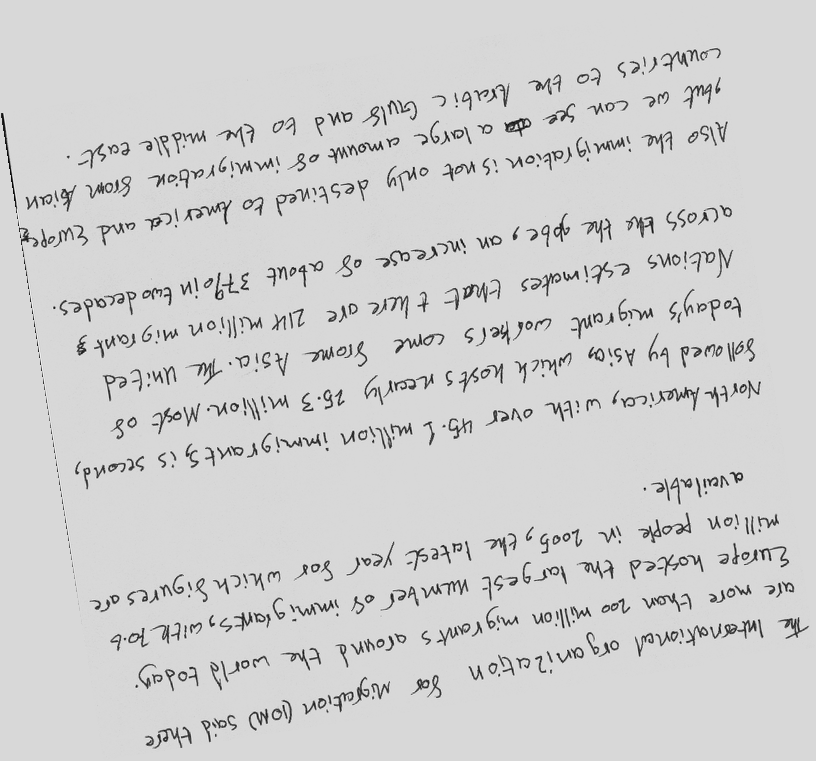 The International organization for Migration (IOM) said there
are more than 200 million migrants around the world today.
Europe hosted the largest number of immigrants, with 70.6
million people in 2005, the latest year for which figures are
available.
North America, with over 45.1 million immigrants, is second,
followed by Asia, which hosts nearly 25.3 million. Most of
today's migrant workers come frome Asia. The United
Nations estimates that there are 214 million migrants
across the globe, an increase of about 37% in two decades.
Also the immigration is not only destined to America and Europe
,but we can see a large amount of immigration from Asian
countries to the Arabic Gulf and to the middle east.